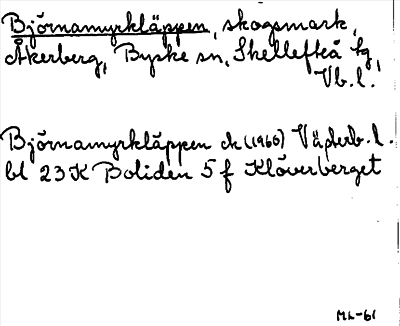 Björnamyrkläppen, skogsmark,
Åkerberg, Byske sn, Skellefteå tg,
Vb.l.
Björnamyrkläppen ek (1966) Västerb. l.
bl 23 K Boliden 5 f Klöverberget
ML-61